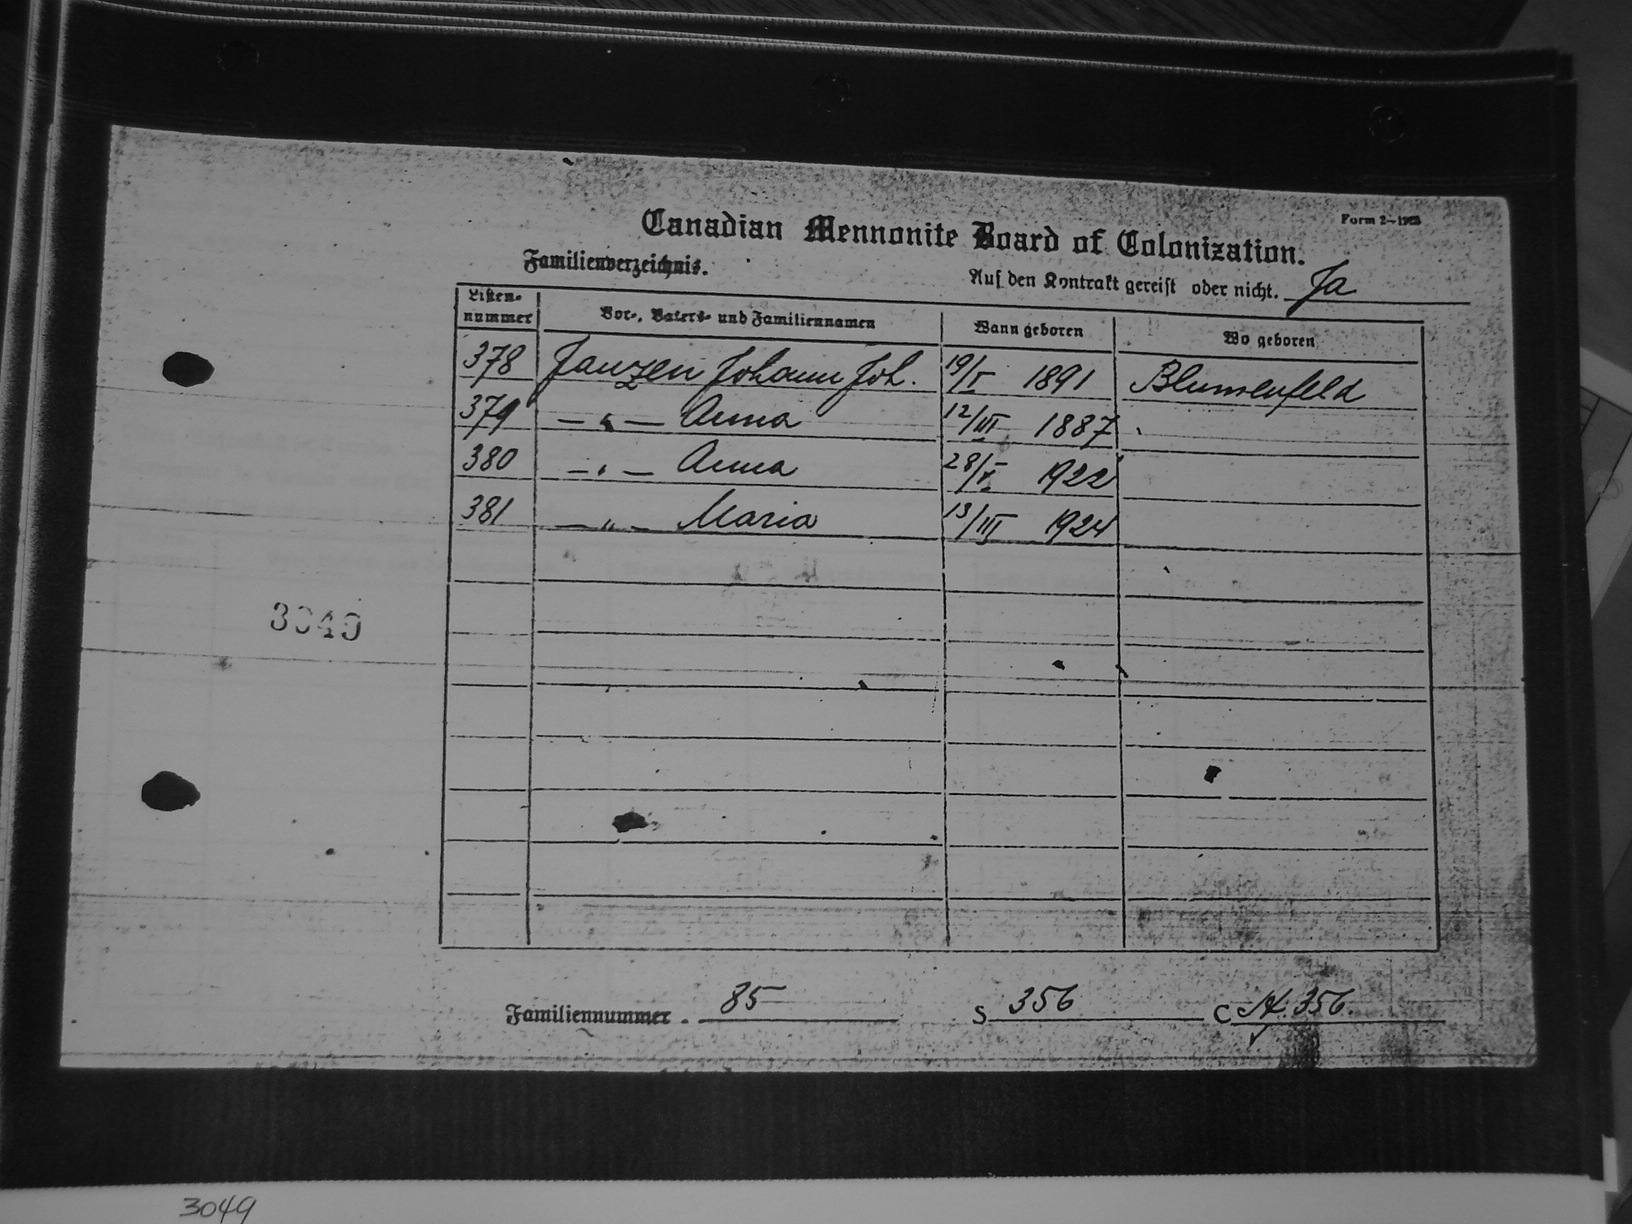 Form 2-1923
Canadian Mennonite Board of Colonization.
Familienverzeichnis.
Auf den Kontrakt gereist oder nicht. Ja
Listen-nummer Vor-, Vaters- und Familiennamen Wann geboren Wo geboren
378 Janzen Johann Joh. 19/I 1891 Blumenfeld
379 — " — Anna 12/III 1887 "
380 — " — Anna 28/X 1922
381 — " — Maria 13/III 1924
3049
Familiennummer. 85 S 356 C 356.
3049